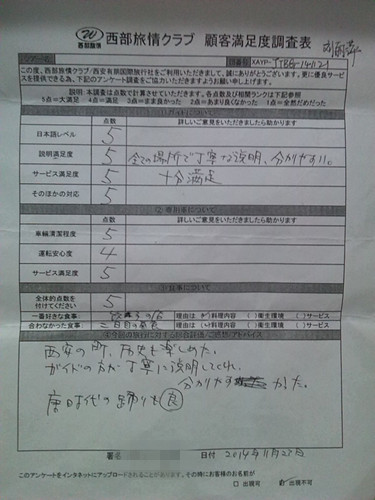 西部旅情
西部旅情クラブ 顧客満足度調査表
この度、西部旅情クラブ/西安有旅国際旅行社をご利用いただきまして、誠にありがとうございます。更に優良サービ
スを提供できる為、下記のアンケート調査をご協力いただきますようお願い申し上げます。
説明:本調査は点数で計算させていただきます。各点数及び相関ランクは下記参照
5点=大満足 4点=満足 3点=まま良かった 2点=あまり良くなかった 1点=全然だめだった
点数 詳しいご意見をいただきましたら助かります
日本語レベル 5
説明満足度 5 全ての場所で丁寧な説明、分かりやすい。
サービス満足度 5 十分満足
そのほかの対応 5
点数 詳しいご意見をいただきましたら助かります
車輛清潔程度 5
運転安心度 4
サービス満足度 5
全体的点数を
付けてください 5
一番好きな食事: 理由は ( )料理内容 ( )衛生環境 ( )サービス
合わなかった食事: 二日目の昼食 理由は ( )料理内容 ( )衛生環境 ( )サービス
西安の町、歴史を楽しめた。
ガイドの方が丁寧に説明してくれ、
分かりやすかった。
唐時代の踊りも良
署名 日付 2014年11月27日
このアンケートをインタネットにアップロードされることがあります。その時にお客様のお名前が
□ 出現可 出現不可